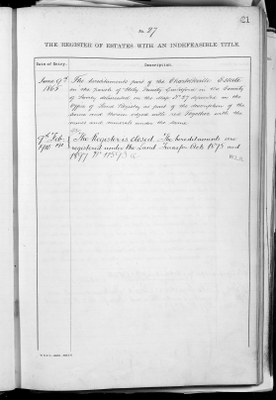 21
No. 27
THE REGISTER OF ESTATES WITH AN INDEFEASIBLE TITLE.
Date of Entry.
Description.
June 9th
1865
The hereditaments part of the Estate
in the Parish of Holy Trinity Guildford in the County
of Surrey delineated on the Map No 27 deposited in the
Office of Land Registry as part of the description of the
same and thereon edged with red Together with the
mines and minerals under the same.
9th Feb.
1910
The Register is closed. The hereditaments are
registered under the Land Transfer Acts 1875 and
1897 No